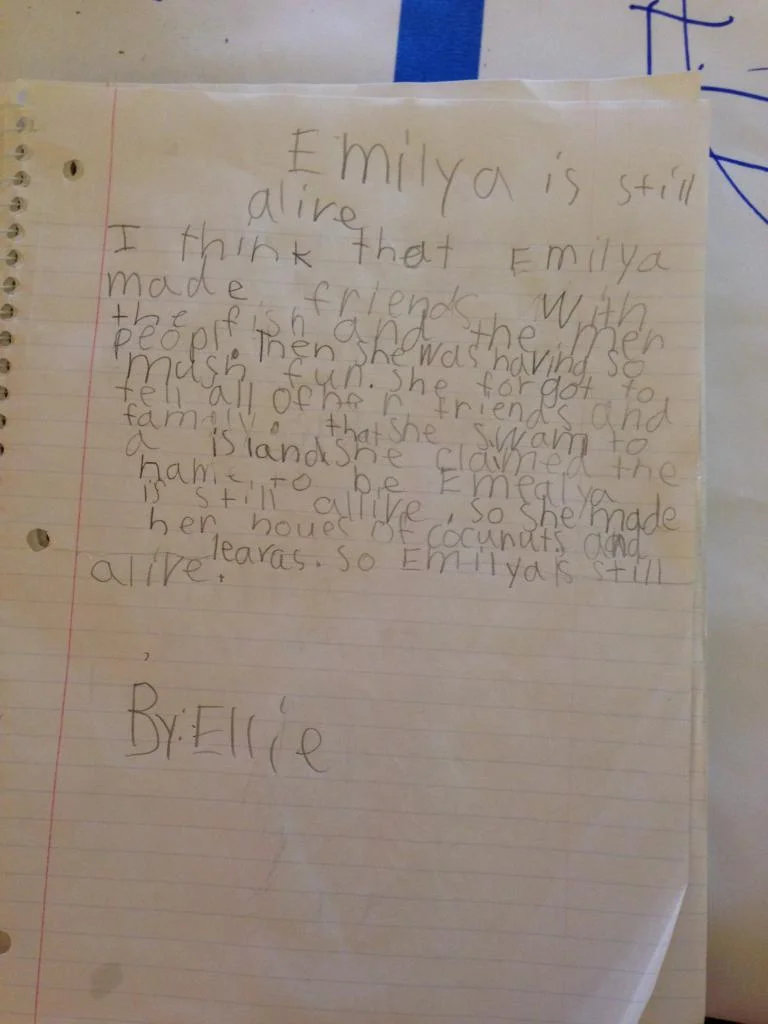 Emilya is still
alire
I think that Emilya
made friends with
the fish and the mer
peopl. Then she was having so
mush fun. she forgot to
tell all of her friends and
family. that she swam to
a island she claymed the
name to be Emealya
is still allive, so she made
her houes of cocunuts and
learas. so Emilya is still
alive.
By: Ellie